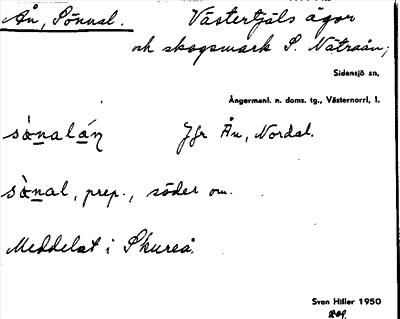 Ån, Sönnal. Västertjäls ägor
och skogsmark S. Nätraån;
Sidensjö sn,
Ångermanl. n. doms. tg., Västernorrl. l.
sònalán Jfr Ån, Nordal.
sònal, prep., söder om.
Meddelat i Skureå.
Sven Hiller 1950